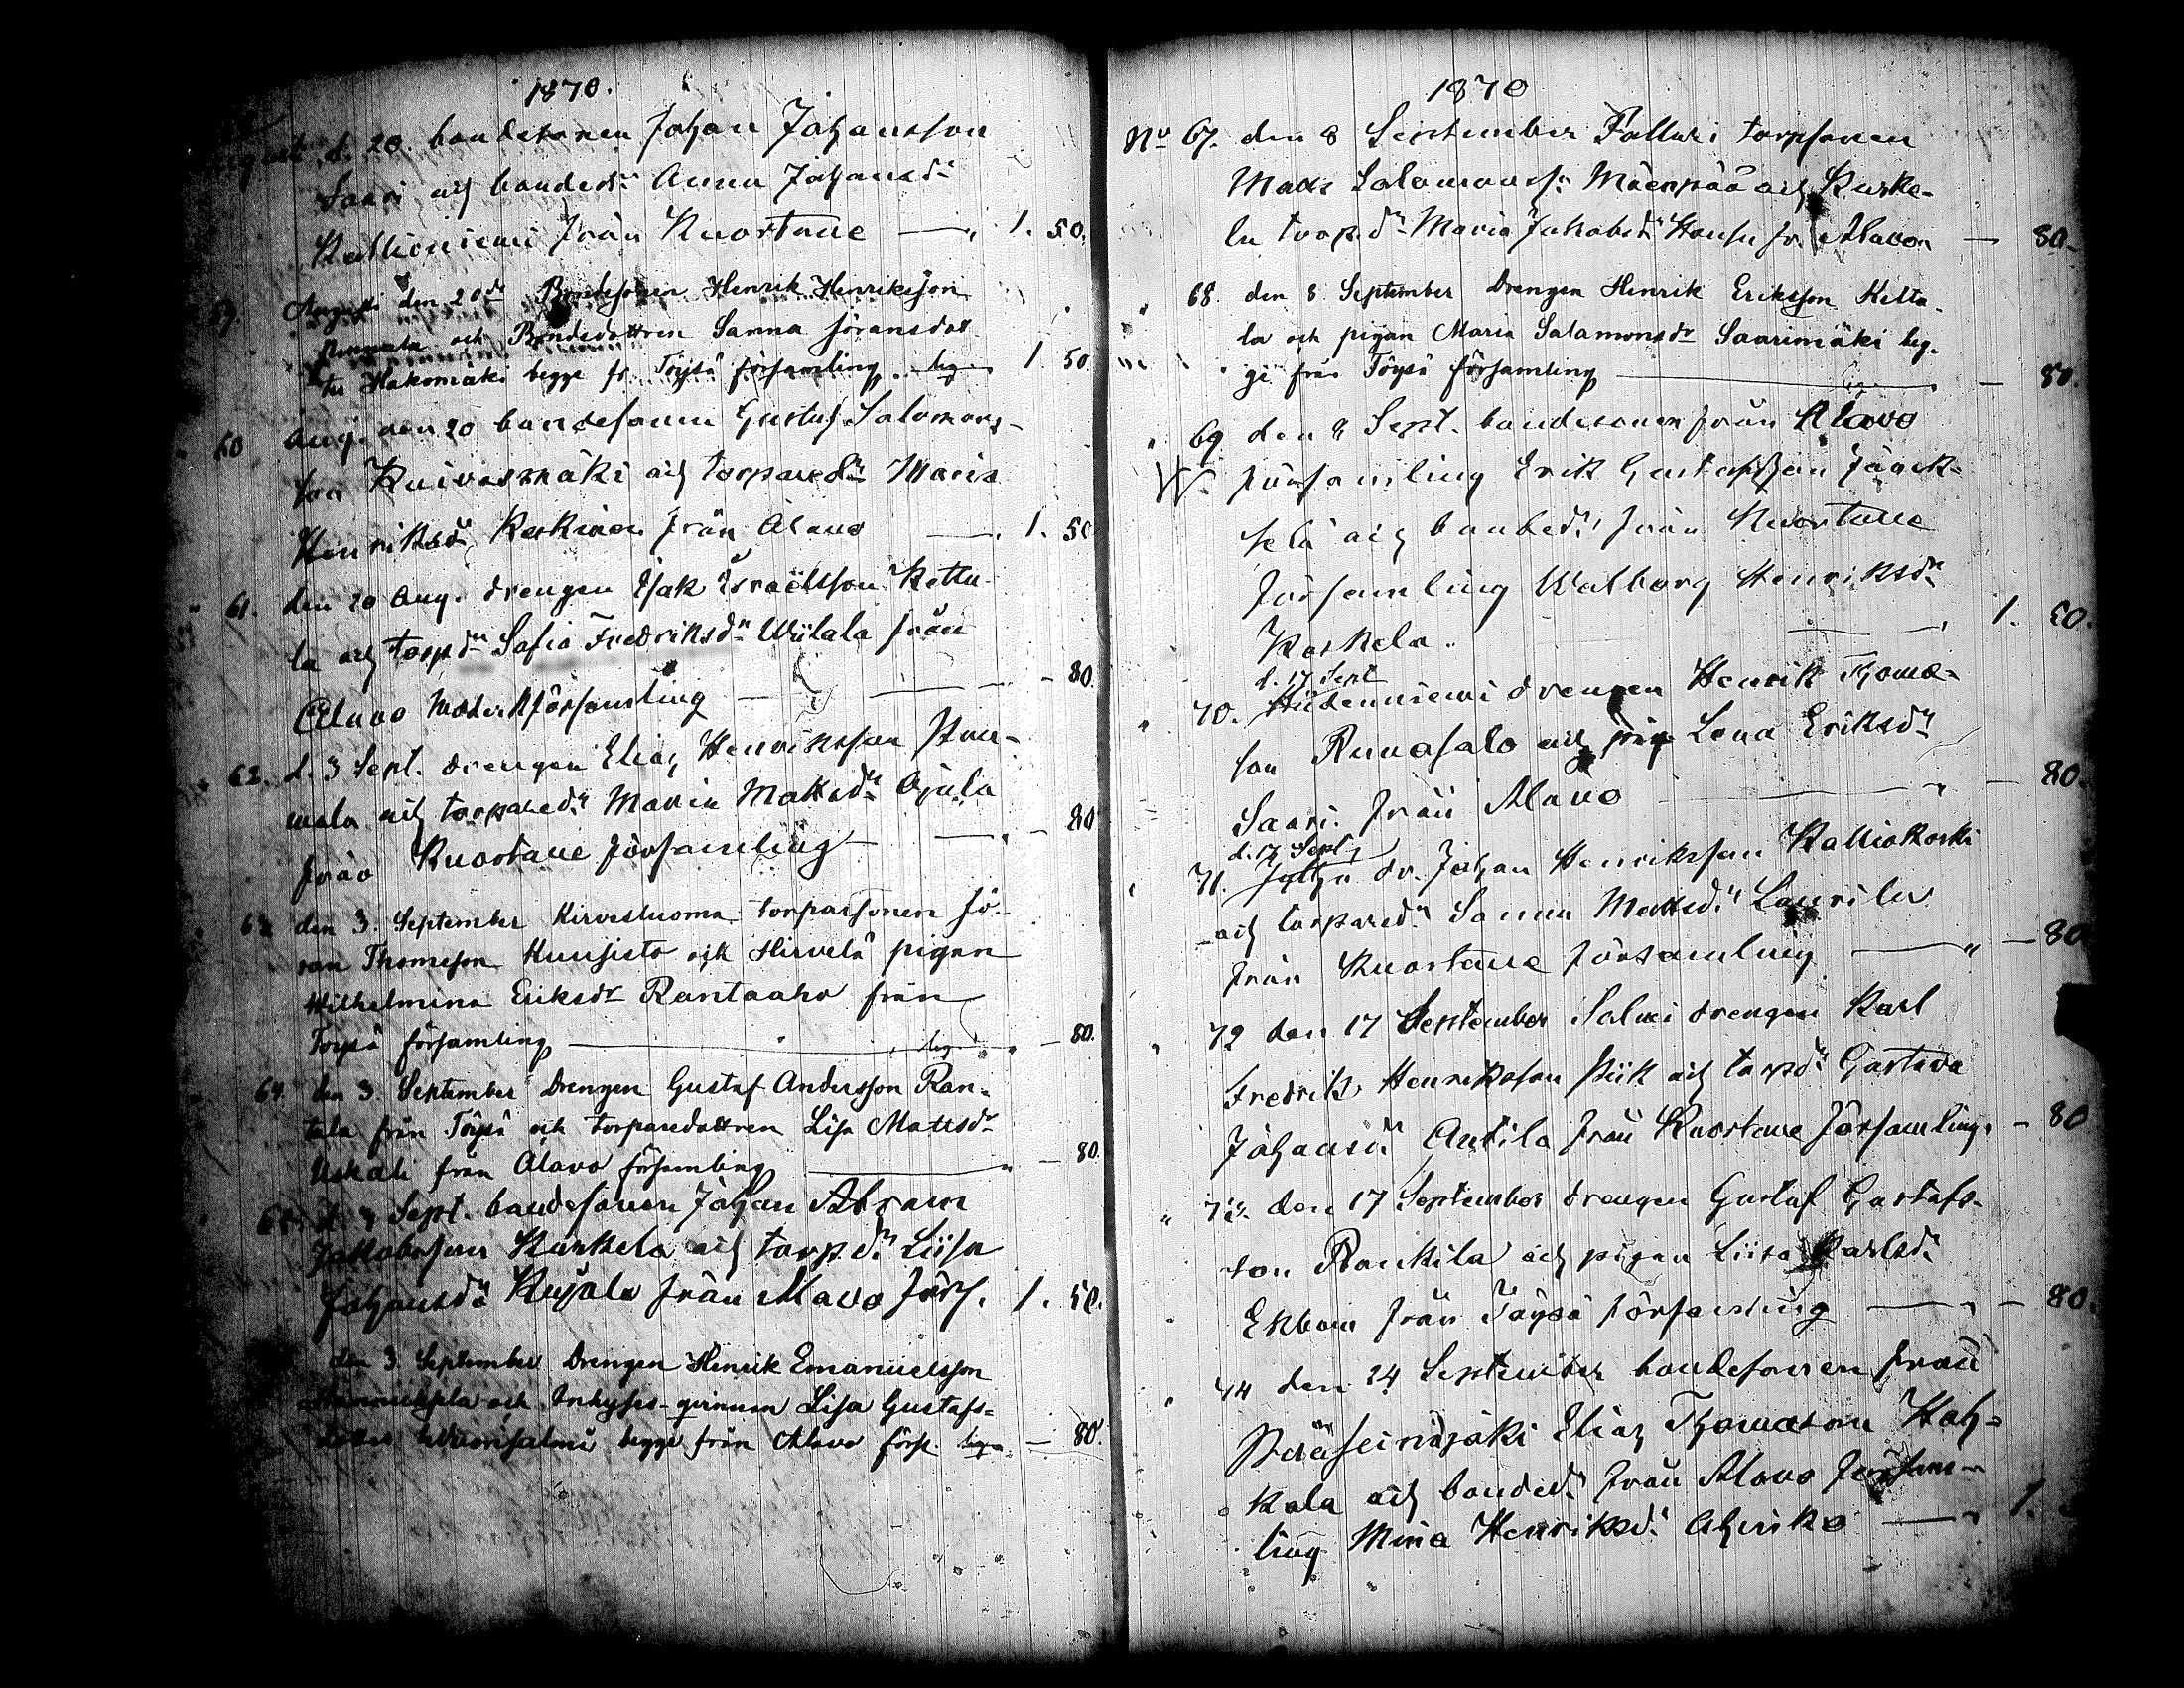 1870.
d. 20. bondesonen Johan Johansson
Saari och bondedr Anna Johansdr
Kallioniemi från Kuortane — 1. 50.
59. Augusti den 20de Bondesonen Henrik Henriksson
och Bondedottren Sanna Jöransdot
ter Hakomäki begge fr. Töysä församling 1. 50
60 Aug. den 20 bondesonen Gustaf Salomons-
son Kuivasmäki och torparedr Maria
Henriksdr Keskinen från Alavo — 1. 50
61. den 20 Aug. drengen Isak Israelsson Kettu-
la och torpdr Safia Fredriksdr Wiitala från
Alavo moderförsamling — 80.
62. d. 3 Sept. drengen Elias Henriksson Pou-
mala och torparedr Maria Mattsdr Ojala
från Kuortane församling — 80
63 den 3. September Hirvesluoma torparsonen Jö-
ran Thomeson Kuusisto och Hirvelä pigan
Wilhelmina Eriksdr Rantaaho från
Töysä församling — 80.
64. den 3. September Drengen Gustaf Andersson Ran-
tala från Töysä och torparedottren Lisa Mattsdr
Uskali från Alavo församling — 80.
65. d. 3 Sept. bondesonen Johan Abram
Jakobsson Kurkela och torpdr Liisa
Johansdr Kujala från Alavo förs. 1. 50.
den 3. September Drengen Henrik Emanuelsson
och Inhyses-qvinnan Lisa Gustafs-
dotter begge från Alavo förs. — 80.
1870
No 67. den 8 September Fallari torpsonen
Matts Salomonss: Mäenpää och Kurke-
la torpdr Maria Jakobsdr Hansu fr. Alavo — 80.
68. den 8. September Drengen Henrik Eriksson Kelta-
la och pigan Maria Salamonsdr Saarimäki beg-
ge från Töysä församling — 80.
69 den 8 Sept. bondesonen från Alavo
församling Erik Gustafsson Jäväk-
selä och bondedr från Kuortane
församling Walborg Henriksdr
Koskela. — 1. 50.
d. 17 Sept
70. Hiidenniemi drengen Henrik Thoma-
son Ruuasalo och pig. Lena Eriksdr
Saari från Alavo — 80.
d. 17 Sept.
71. dr. Johan Henriksson Kalliokoski
och torparedr Sanna Mattsdr Laurila
från Kuortane församling — 80
72 den 17 September Salmi drengen Karl
Fredrik Henriksson Piik och torpdr Gustava
Johansdr Antila från Kuortane församling. — 80
73. den 17 September drengen Gustaf Gustafs-
son Rankila och pigan Liisa Karlsdr
Ekbom från Töysä församling — 80.
74 den 24 September bondesonen från
Peräseinäjoki Elias Thomason Koh-
kala och bondedr från Alavo församl-
ling Mina Henriksdr — 1.